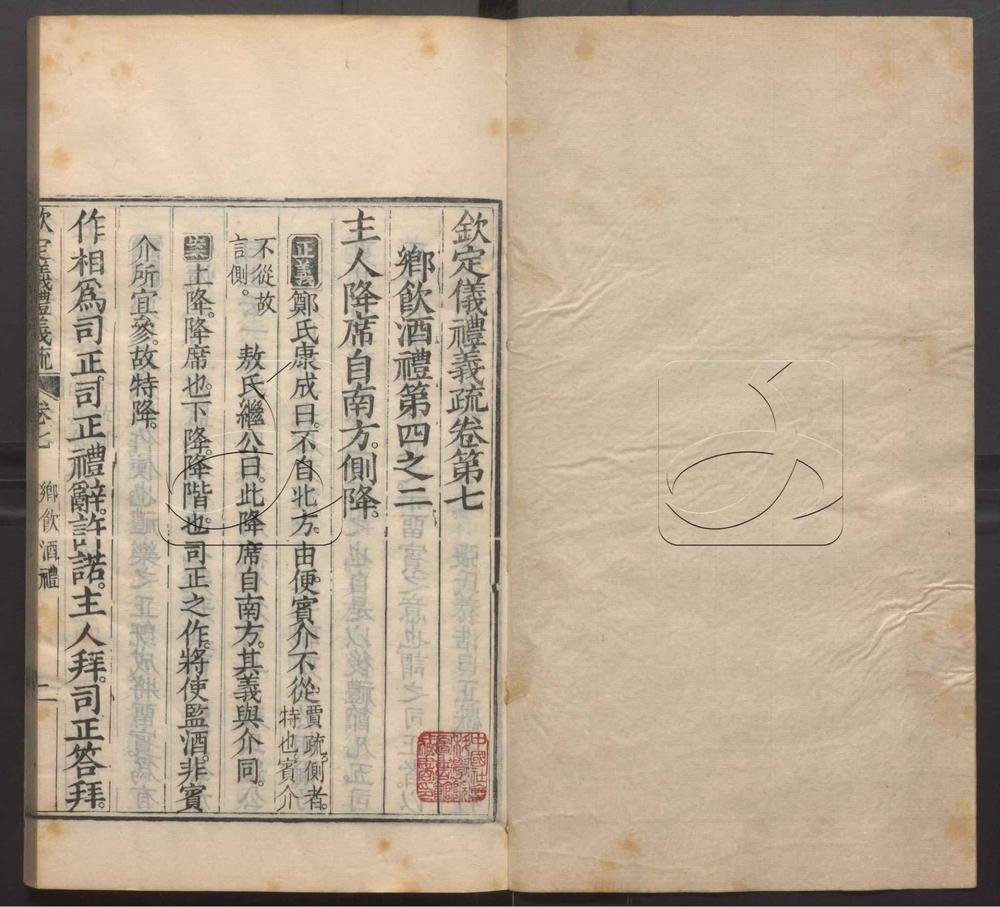 欽定儀禮義疏卷第七
鄉飲酒禮第四之二
主人降席自南方。側降。
正義鄭氏康成曰。不自北方。由便。賓介不從。賈疏。側者。特也。賓介
不從。故言側。敖氏繼公曰。此降席自南方。其義與介同。
案上降。降席也。下降。降階也。司正之作。將使監酒。非賓
介所宜參。故特降。
作相爲司正。司正禮辭。許諾。主人拜。司正答拜。
欽定儀禮義疏 卷七 鄉飲酒禮 一